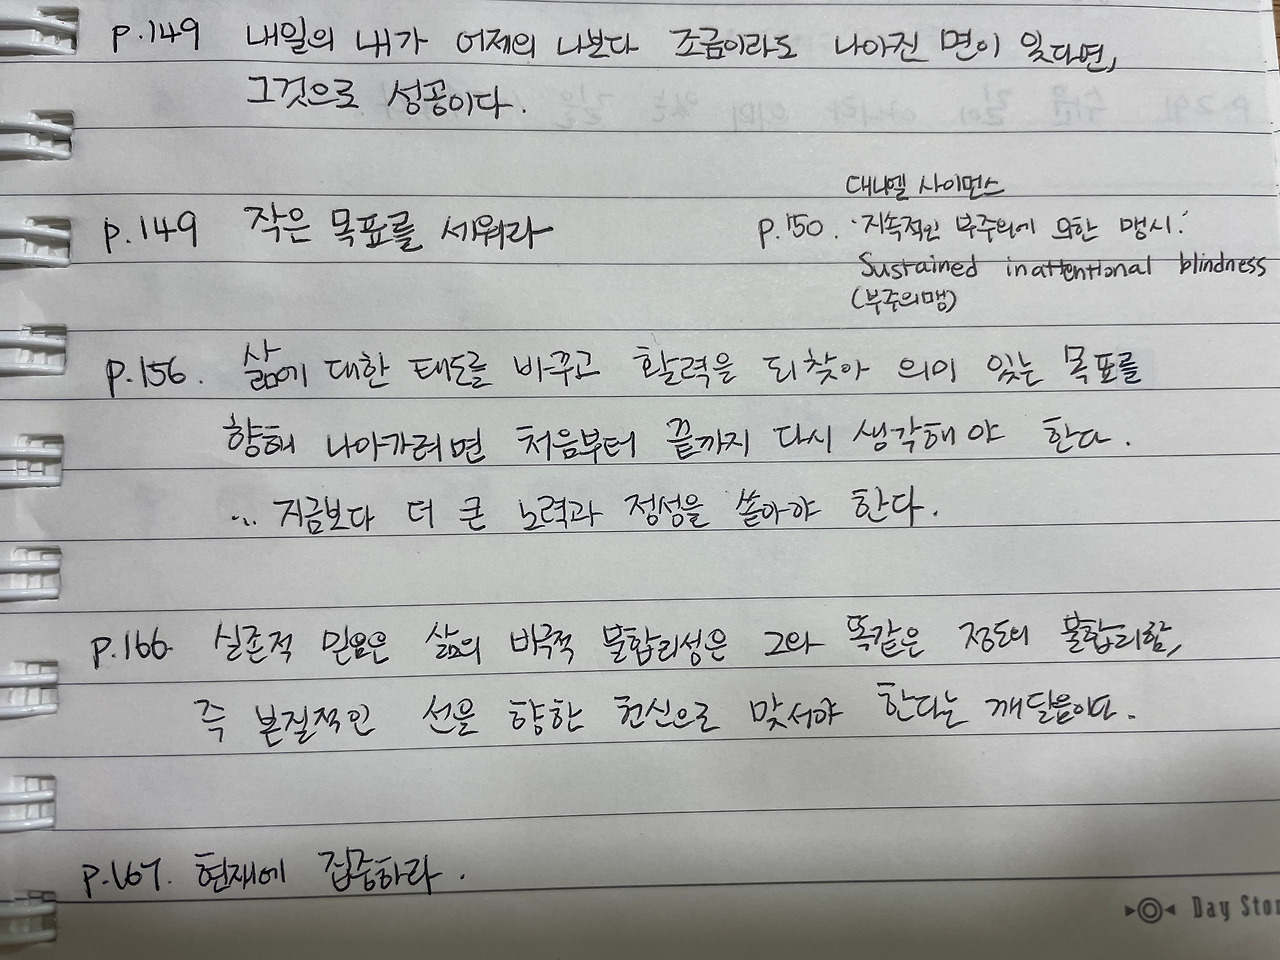 p.149 내일의 내가 어제의 나보다 조금이라도 나아진 면이 있다면,
그것으로 성공이다.
p.149 작은 목표를 세워라
대니엘 사이먼스
p.150. '지속적인 부주의에 의한 맹시.'
Sustained inattentional blindness
(부주의맹)
p.156. 삶에 대한 태도를 바꾸고 활력을 되찾아 의미 있는 목표를
향해 나아가려면 처음부터 끝까지 다시 생각해야 한다.
... 지금보다 더 큰 노력과 정성을 쏟아야 한다.
p.166 실존적 믿음은 삶의 비극적 불합리성은 그와 똑같은 정도의 불합리함,
즉 본질적인 선을 향한 헌신으로 맞서야 한다는 깨달음이다.
p.167. 현재에 집중하라.
Day Stor